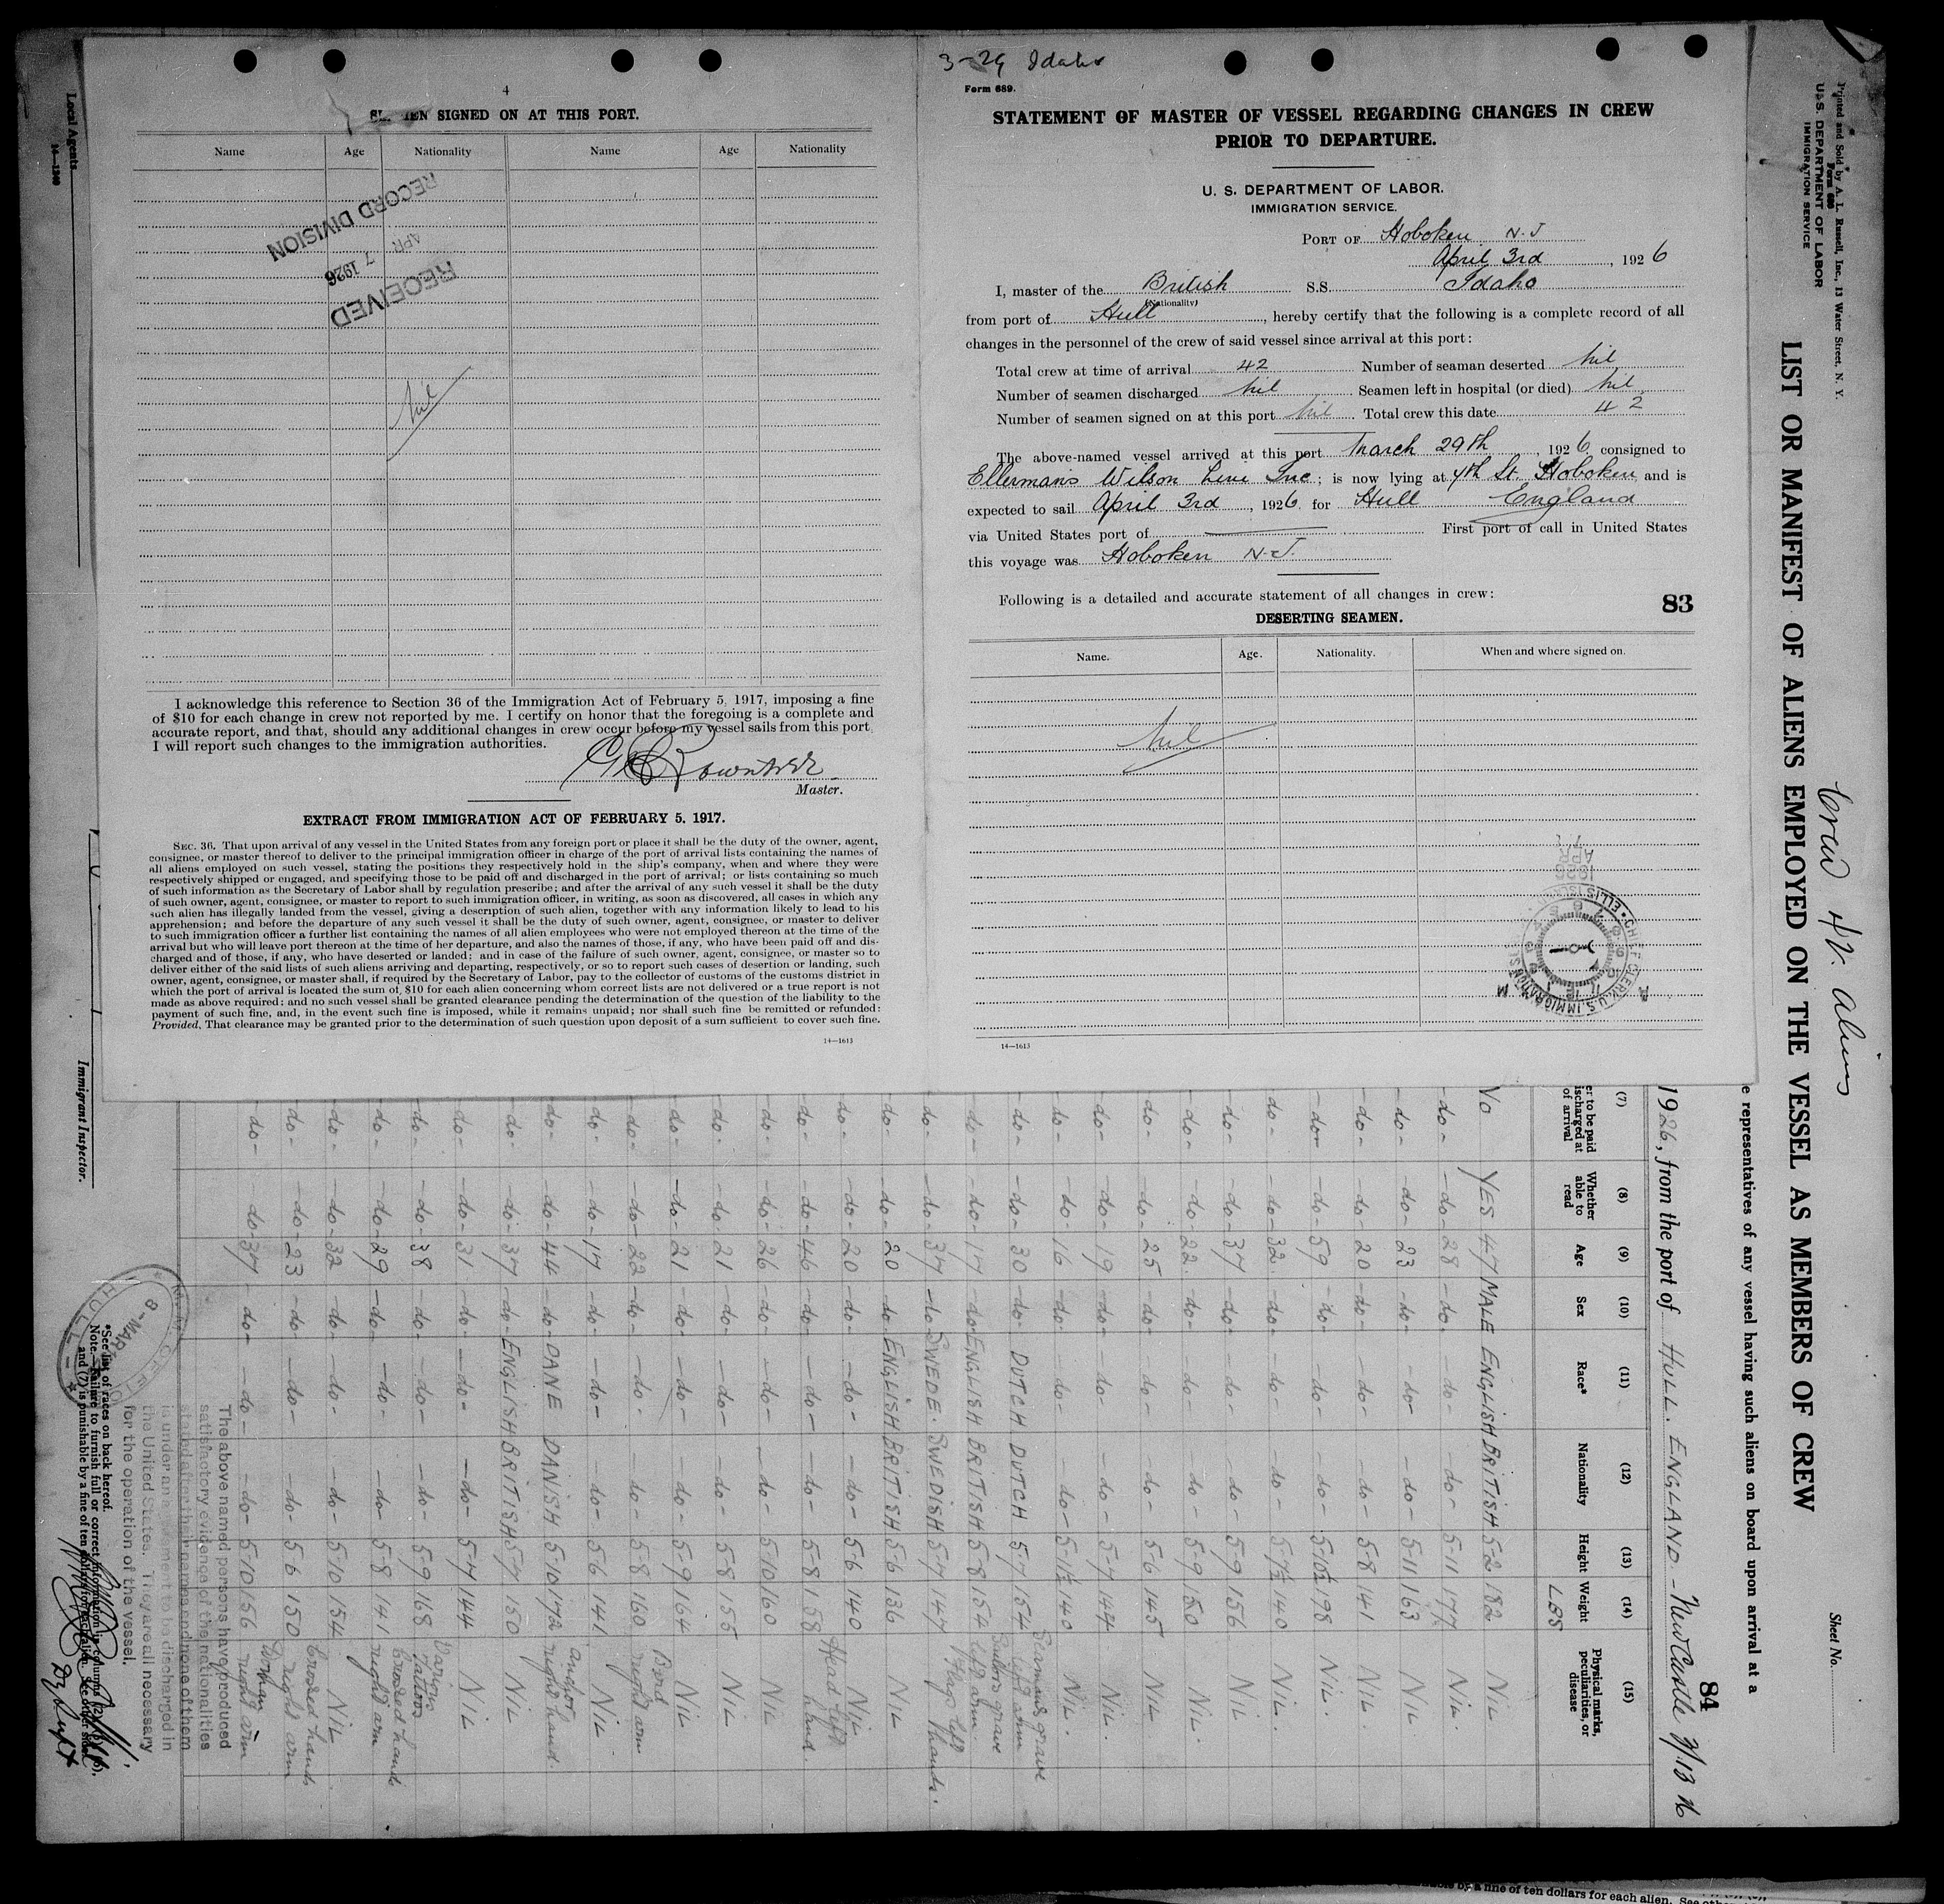 4
SIGNED ON AT THIS PORT.
Name Age Nationality Name Age Nationality
RECORD DIVISION
APR 7 1926
RECEIVED
Nil
I acknowledge this reference to Section 36 of the Immigration Act of February 5, 1917, imposing a fine
of $10 for each change in crew not reported by me. I certify on honor that the foregoing is a complete and
accurate report, and that, should any additional changes in crew occur before my vessel sails from this port
I will report such changes to the immigration authorities.
Master.
EXTRACT FROM IMMIGRATION ACT OF FEBRUARY 5, 1917.
SEC. 36. That upon arrival of any vessel in the United States from any foreign port or place it shall be the duty of the owner, agent,
consignee, or master thereof to deliver to the principal immigration officer in charge of the port of arrival lists containing the names of
all aliens employed on such vessel, stating the positions they respectively hold in the ship's company, when and where they were
respectively shipped or engaged, and specifying those to be paid off and discharged in the port of arrival; or lists containing so much
of such information as the Secretary of Labor shall by regulation prescribe; and after the arrival of any such vessel it shall be the duty
of such owner, agent, consignee, or master to report to such immigration officer, in writing, as soon as discovered, all cases in which any
such alien has illegally landed from the vessel, giving a description of such alien, together with any information likely to lead to his
apprehension; and before the departure of any such vessel it shall be the duty of such owner, agent, consignee, or master to deliver
to such immigration officer a further list containing the names of all alien employees who were not employed thereon at the time of the
arrival but who will leave port thereon at the time of her departure, and also the names of those, if any, who have been paid off and dis-
charged and of those, if any, who have deserted or landed; and in case of the failure of such owner, agent, consignee, or master so to
deliver either of the said lists of such aliens arriving and departing, respectively, or so to report such cases of desertion or landing, such
owner, agent, consignee, or master shall, if required by the Secretary of Labor, pay to the collector of customs of the customs district in
which the port of arrival is located the sum of $10 for each alien concerning whom correct lists are not delivered or a true report is not
made as above required; and no such vessel shall be granted clearance pending the determination of the question of the liability to the
payment of such fine, and, in the event such fine is imposed, while it remains unpaid; nor shall such fine be remitted or refunded:
Provided, That clearance may be granted prior to the determination of such question upon deposit of a sum sufficient to cover such fine.
14—1613
3-29 Idaho
Form 689.
STATEMENT OF MASTER OF VESSEL REGARDING CHANGES IN CREW
PRIOR TO DEPARTURE.
U. S. DEPARTMENT OF LABOR.
IMMIGRATION SERVICE.
PORT OF Hoboken N.J
April 3rd, 1926
I, master of the British S.S. Idaho
(Nationality)
from port of Hull, hereby certify that the following is a complete record of all
changes in the personnel of the crew of said vessel since arrival at this port:
Total crew at time of arrival 42 Number of seaman deserted Nil
Number of seamen discharged Nil Seamen left in hospital (or died) Nil
Number of seamen signed on at this port Nil Total crew this date 42
The above-named vessel arrived at this port March 29th, 1926 consigned to
Ellerman's Wilson Line Inc; is now lying at 4th St. Hoboken and is
expected to sail April 3rd, 1926 for Hull England
via United States port of First port of call in United States
this voyage was Hoboken N.J.
Following is a detailed and accurate statement of all changes in crew:
83
DESERTING SEAMEN.
Name. Age. Nationality. When and where signed on.
Nil
14—1613
Local Agents
14—1240
Immigrant Inspector.
Printed and Sold by A. L. Russell, Inc., 13 Water Street, N. Y.
Form 680
U. S. DEPARTMENT OF LABOR
IMMIGRATION SERVICE
Crew 42 Aliens
LIST OR MANIFEST OF ALIENS EMPLOYED ON THE VESSEL AS MEMBERS OF CREW
Sheet No.
e representatives of any vessel having such aliens on board upon arrival at a
84
1926, from the port of HULL. ENGLAND - NewCastle 3/13 26
(7) (8) (9) (10) (11) (12) (13) (14) (15)
er to be paid ischarged at of arrival Whether able to read Age Sex Race* Nationality Height Weight Physical marks, peculiarities, or disease
LBS
NO YES 47 MALE ENGLISH BRITISH 5-2 182 NIL
-do- -do- 28 -do- -do- -do- 5-11 177 NIL.
-do- -do- 23 -do- -do- -do- 5-11 163 NIL
-do- -do- 20 -do- -do- -do- 5-8 141 NIL.
-do- -do- 59 -do- -do- -do- 5-10½ 198 NIL.
-do- -do- 32 -do- -do- -do- 5-7½ 140 NIL.
-do- -do- 37 -do- -do- -do- 5-9 156 NIL
-do- -do- 22 -do- -do- -do- 5-9 150 NIL.
-do- -do- 25 -do- -do- -do- 5-6 145 NIL
-do- -do- 19 -do- -do- -do- 5-7 144 NIL.
-do- -do- 16 -do- -do- -do- 5-1½ 140 NIL.
-do- -do- 30 -do- DUTCH DUTCH 5-7 154 Seamans grave left arm
-do- -do- 17 -do- ENGLISH BRITISH 5-8 154 Sailors grave left arm.
-do- -do- 37 -do- SWEDE. SWEDISH 5-7 147 Flags left hands.
-do- -do- 20 -do- ENGLISH BRITISH 5-6 136 NIL
-do- -do- 20 -do- -do- -do- 5-6 140 NIL
-do- -do- 46 -do- -do- -do- 5-8 158 Head left hand.
-do- -do- 26 -do- -do- -do- 5-10 160 NIL
-do- -do- 21 -do- -do- -do- 5-8 155 NIL
-do- -do- 21 -do- -do- -do- 5-9 164 NIL
-do- -do- 22 -do- -do- -do- 5-8 160 Bird right arm
-do- -do- 17 -do- -do- -do- 5-6 141 NIL
-do- -do- 44 -do- DANE DANISH 5-10 172 Anchor right hand.
-do- -do- 37 -do- ENGLISH BRITISH 5-7 150 NIL
-do- -do- 31 -do- -do- -do- 5-7 144 NIL
-do- -do- 38 -do- -do- -do- 5-9 168 Various tattoos
-do- -do- 29 -do- -do- -do- 5-8 141 Crossed hands right arm
-do- -do- 32 -do- -do- -do- 5-10 154 NIL.
-do- -do- 23 -do- -do- -do- 5-6 150 Crossed hands right arm
-do- -do- 37 -do- -do- -do- 5-10 156 Woman right arm
The above named persons have produced
satisfactory evidence of the nationalities
stated after their names and none of them
is under an agreement to be discharged in
the United States. They are all necessary
for the operation of the vessel.
*See list of races on back hereof.
Note.—Failure to furnish full or correct information in columns (2), (5), (6),
and (7) is punishable by a fine of ten dollars for each alien. See other side.
HULL
8-MAR
CHIEF CLERK U.S. IMMIGRATION ELLIS ISL
1926 APR 7
by a fine of ten dollars for each alien. See other